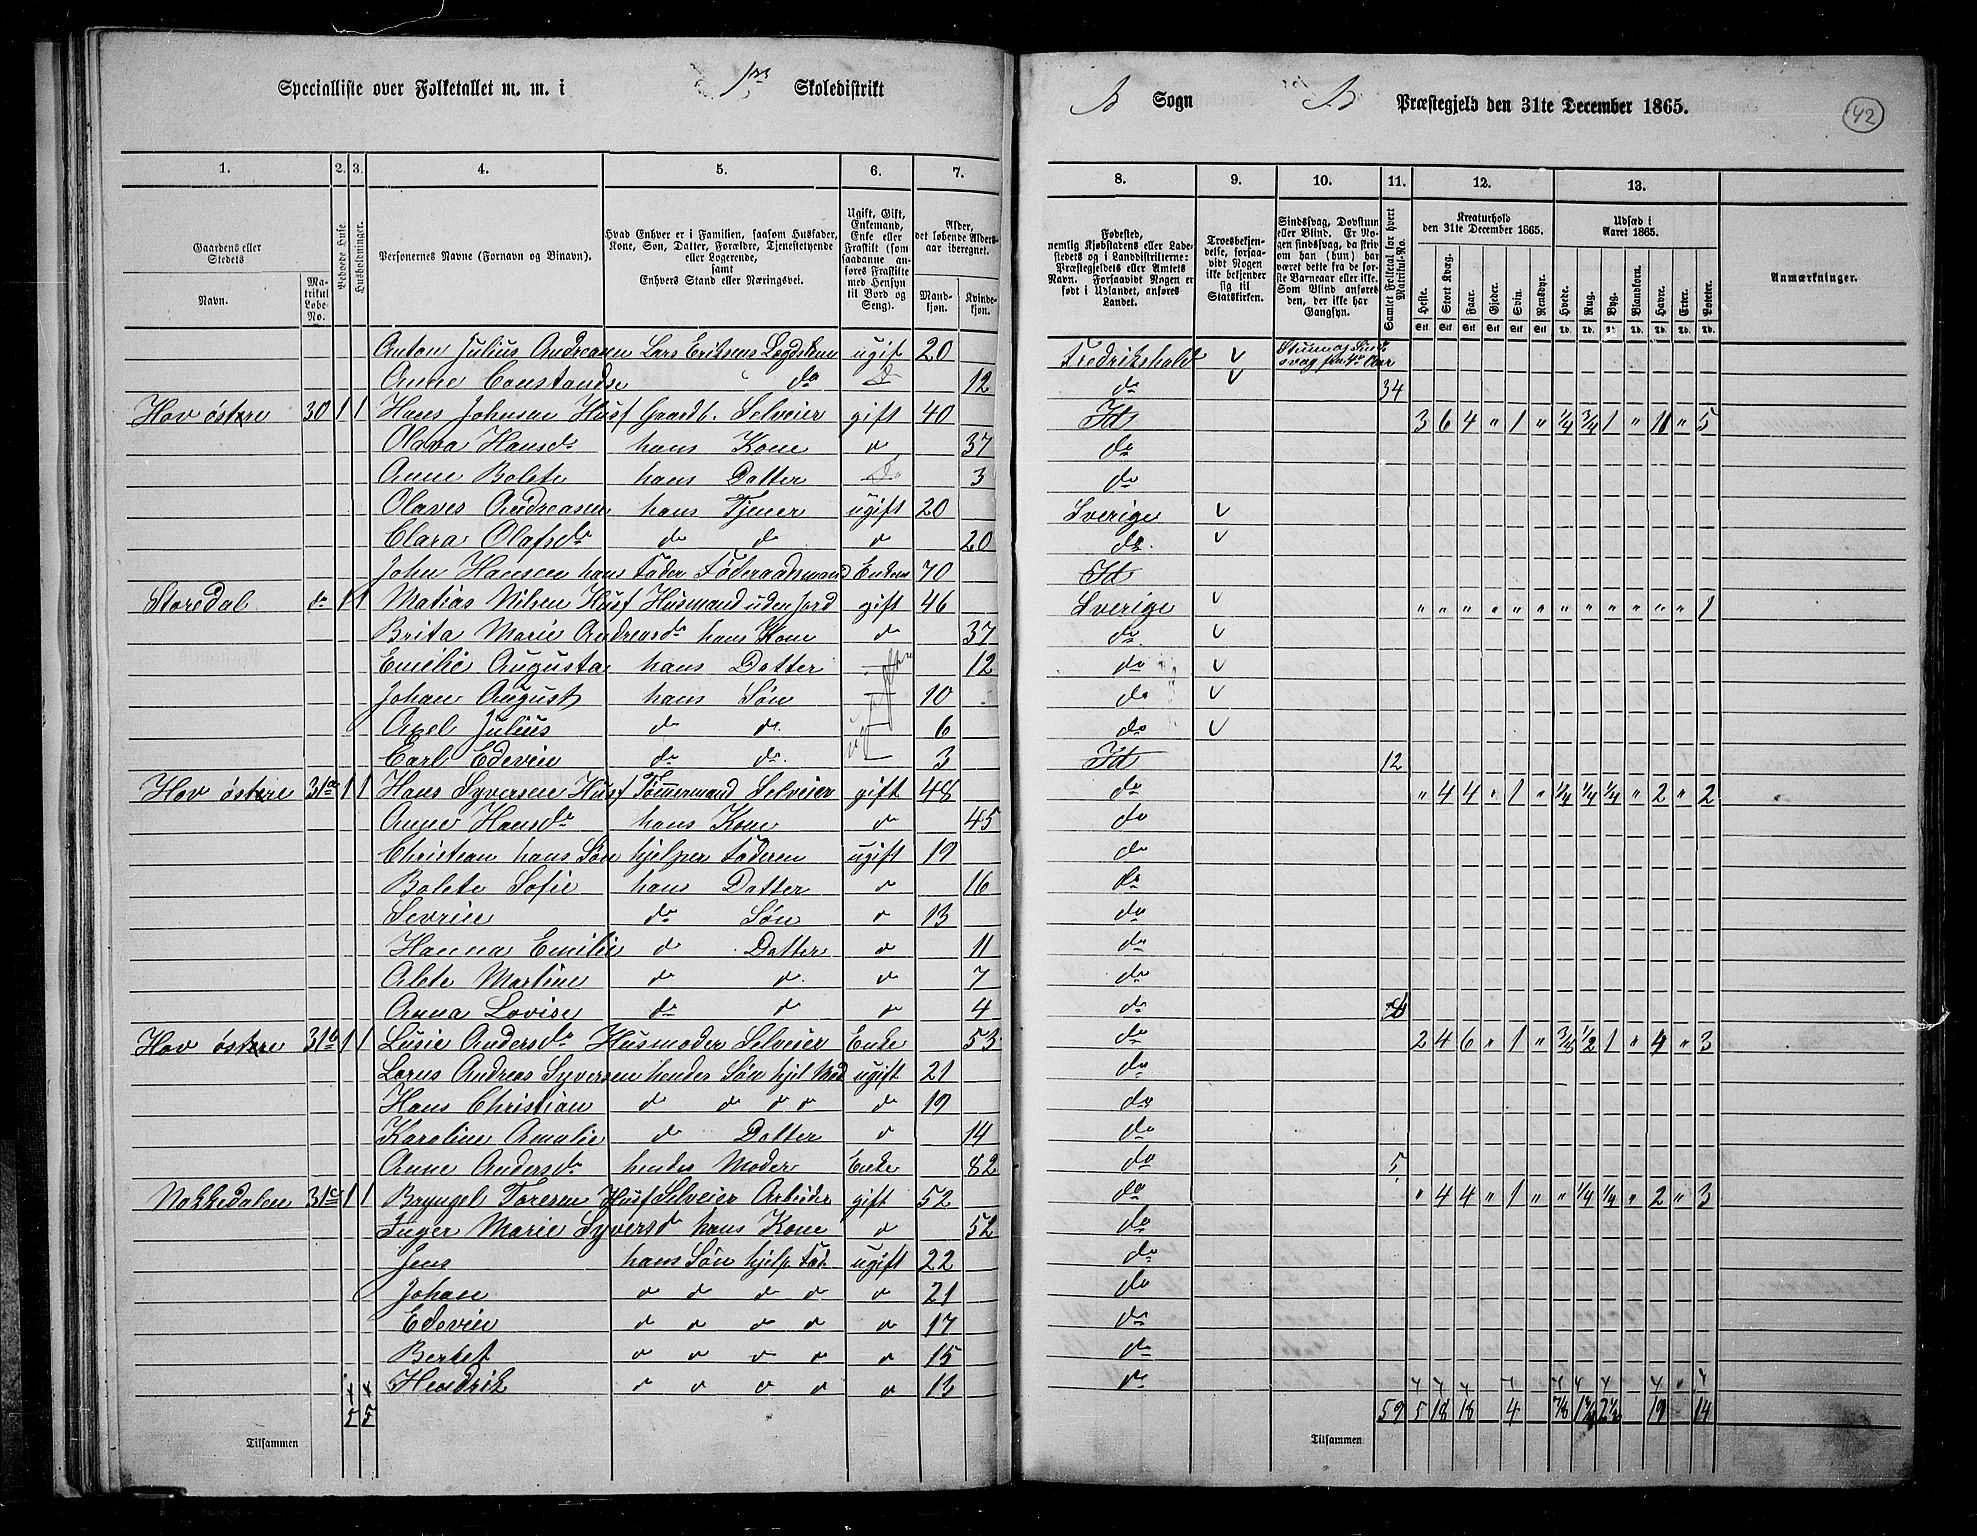 Specialliste over Folketallet m. m. i Skoledistrikt
B Sogn B Præstegjeld den 31te December 1865.
42
1. 2. 3. 4. 5. 6. 7. 8. 9. 10. 11. 12. 13.
Gaardens eller Stedets
Navn.
Matrikul Løbe-No.
Beboede Huse.
Husholdninger.
Personernes Navne (Fornavn og Binavn).
Hvad Enhver er i Familien, saasom Husfader, Kone, Søn, Datter, Forældre, Tjenestetyende eller Logerende, samt Enhvers Stand eller Næringsvei.
Ugift, Gift, Enkemand, Enke eller Fraskilt (som saadanne anføres Fraskilte med Hensyn til Bord og Seng).
Alder, det løbende Aldersaar iberegnet.
Mandkjøn.
Kvindekjøn.
Fødested, nemlig Kjøbstadens eller Ladestedets og i Landdistrikterne: Præstegjeldets eller Amtets Navn. Forsaavidt Nogen er født i Udlandet, anføres Landet.
Troesbekjendelse, forsaavidt Nogen ikke bekjender sig til Statskirken.
Sindssvag, Døvstum eller Blind. Er Nogen sindssvag, da skrives om han (hun) har været dette fra de første Barneaar eller ikke. Som Blind anføres den, der ikke har Gangsyn.
Samlet Folketal for hvert Matrikul-No.
Kreaturhold den 31te December 1865.
Heste. Stort Kvæg. Faar. Gjeder. Svin. Rensdyr.
Udsæd i Aaret 1865.
Hvede. Rug. Byg. Blandkorn. Havre. Erter. Poteter.
Anmærkninger.
Anton Julius Andreasen Lars Eriksens Lægdslem ugif 20 Fredrikshald
Anne Constandse do do 12 do 34
Hov østre 30 1 1 Hans Johnsen Husf Gaardb. Selveier gift 40 Id 3 6 4 " 1 " 1/4 3/4 1 " 11 " 5
Olava Hansd. hans Kone do 37 do
Anne Bolete hans Datter do 3 do
Olaves Andreasen hans Tjener ugift 20 Sverige
Clara Olafsd. do do do 20 do.
John Hansen hans Fader Føderaadsmand Enkem 70 Id
Storedal do 1 1 Matias Nilsen Husf Husmand uden Jord gift 46 Sverige " " " " " " " " " " " " 1
Brita Marie Andreasd. hans Kone do 37 do
Emilie Augusta hans Datter 12 do
Johan August hans Søn ugift 10 do
Axel Julius do do. 6 do
Carl Edevin do do. 3 Id 12
Hov østre 31a 1 1 Hans Syversen Husf Tømmermand Selveier gift 48 do " 4 4 " 1 " 1/4 1/4 1/4 " 2 " 2
Anne Hansd. hans Kone do 45 do
Christian hans Søn hjelper Faderen ugift 19 do
Bolete Sofie hans Datter do 16 do
Sevrin do Søn do 13 do
Hanna Emilie do Datter do 11 do
Alete Martine do do. do 7 do
Anna Lovise do do do 4 do
Hov østre 31b 1 1 Lusie Andersd. Husmoder Selveier Enke 53 do 2 4 6 " 1 " 1/2 1 " 4 " 3
Lorus Andreas Syversen hendes Søn hjel Mod ugift 21 do
Hans Christian do do do do do 19 do
Karoline Amalie do Datter do 14 do
Anne Andersd. hendes Moder Enke 82 do 5
Nokkedalen 31c 1 1 Bryngel Toresen Husf Selveier Arbeider gift 52 do " 4 4 " 1 " " 1/4 1/4 " 2 " 3
Inger Marie Syversd. hans Kone do 52 do
Jens hans Søn hjelp. Fad. ugift 22 do
Johan do do do do do 21 do
Edevin do do do do do 17 do
Bertel do do do do do 15 do
Hendrik do do do do do 13 do
5 5 59 5 18 18 4 7/8 19 14
Tilsammen Tilsammen